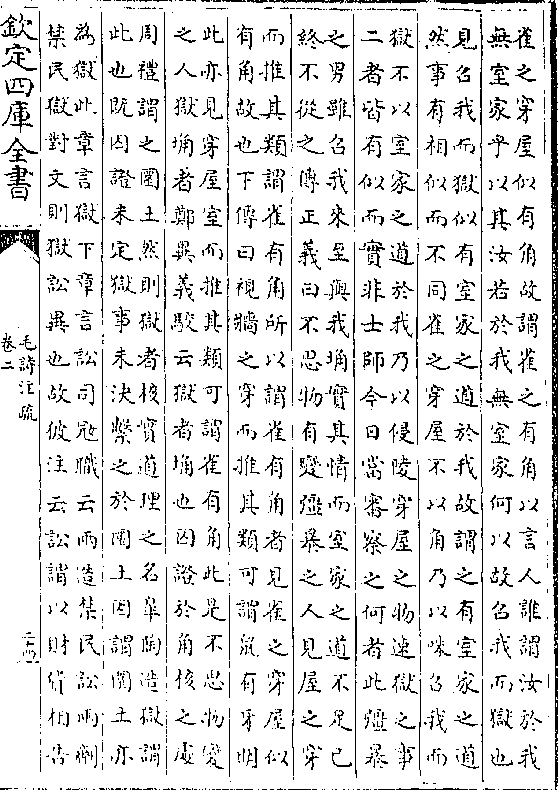 雀之穿屋似有角故謂雀之有角以言人誰謂汝於我
無室家乎以其汝若於我無室家何以故召我而獄也
見召我而獄似有室家之道於我故謂之有室家之道
然事有相似而不同雀之穿屋不以角乃以咮召我而
獄不以室家之道於我乃以侵陵穿屋之物速獄之事
二者皆有似而實非士師今日當審察之何者此彊暴
之男雖召我來至與我埆實其情而室家之道不足已
終不從之傳正義曰不思物有變彊暴之人見屋之穿
而推其類謂雀有角所以謂雀有角者見雀之穿屋似
有角故也下傳曰視牆之穿而推其類可謂鼠有牙明
此亦見穿屋室而推其類可謂雀有角此是不思物變
之人獄埆者鄭異義駁云獄者埆也囚證於角核之處
周禮謂之圜土然則獄者核實道理之名皋陶造獄謂
此也既囚證未定獄事未決繫之於圜土因謂圜土亦
為獄此章言獄下章言訟司冦職云兩造禁民訟兩劑
禁民獄對文則獄訟異也故彼注云訟謂以財貨相告
欽定四庫全書
毛詩注疏
卷二